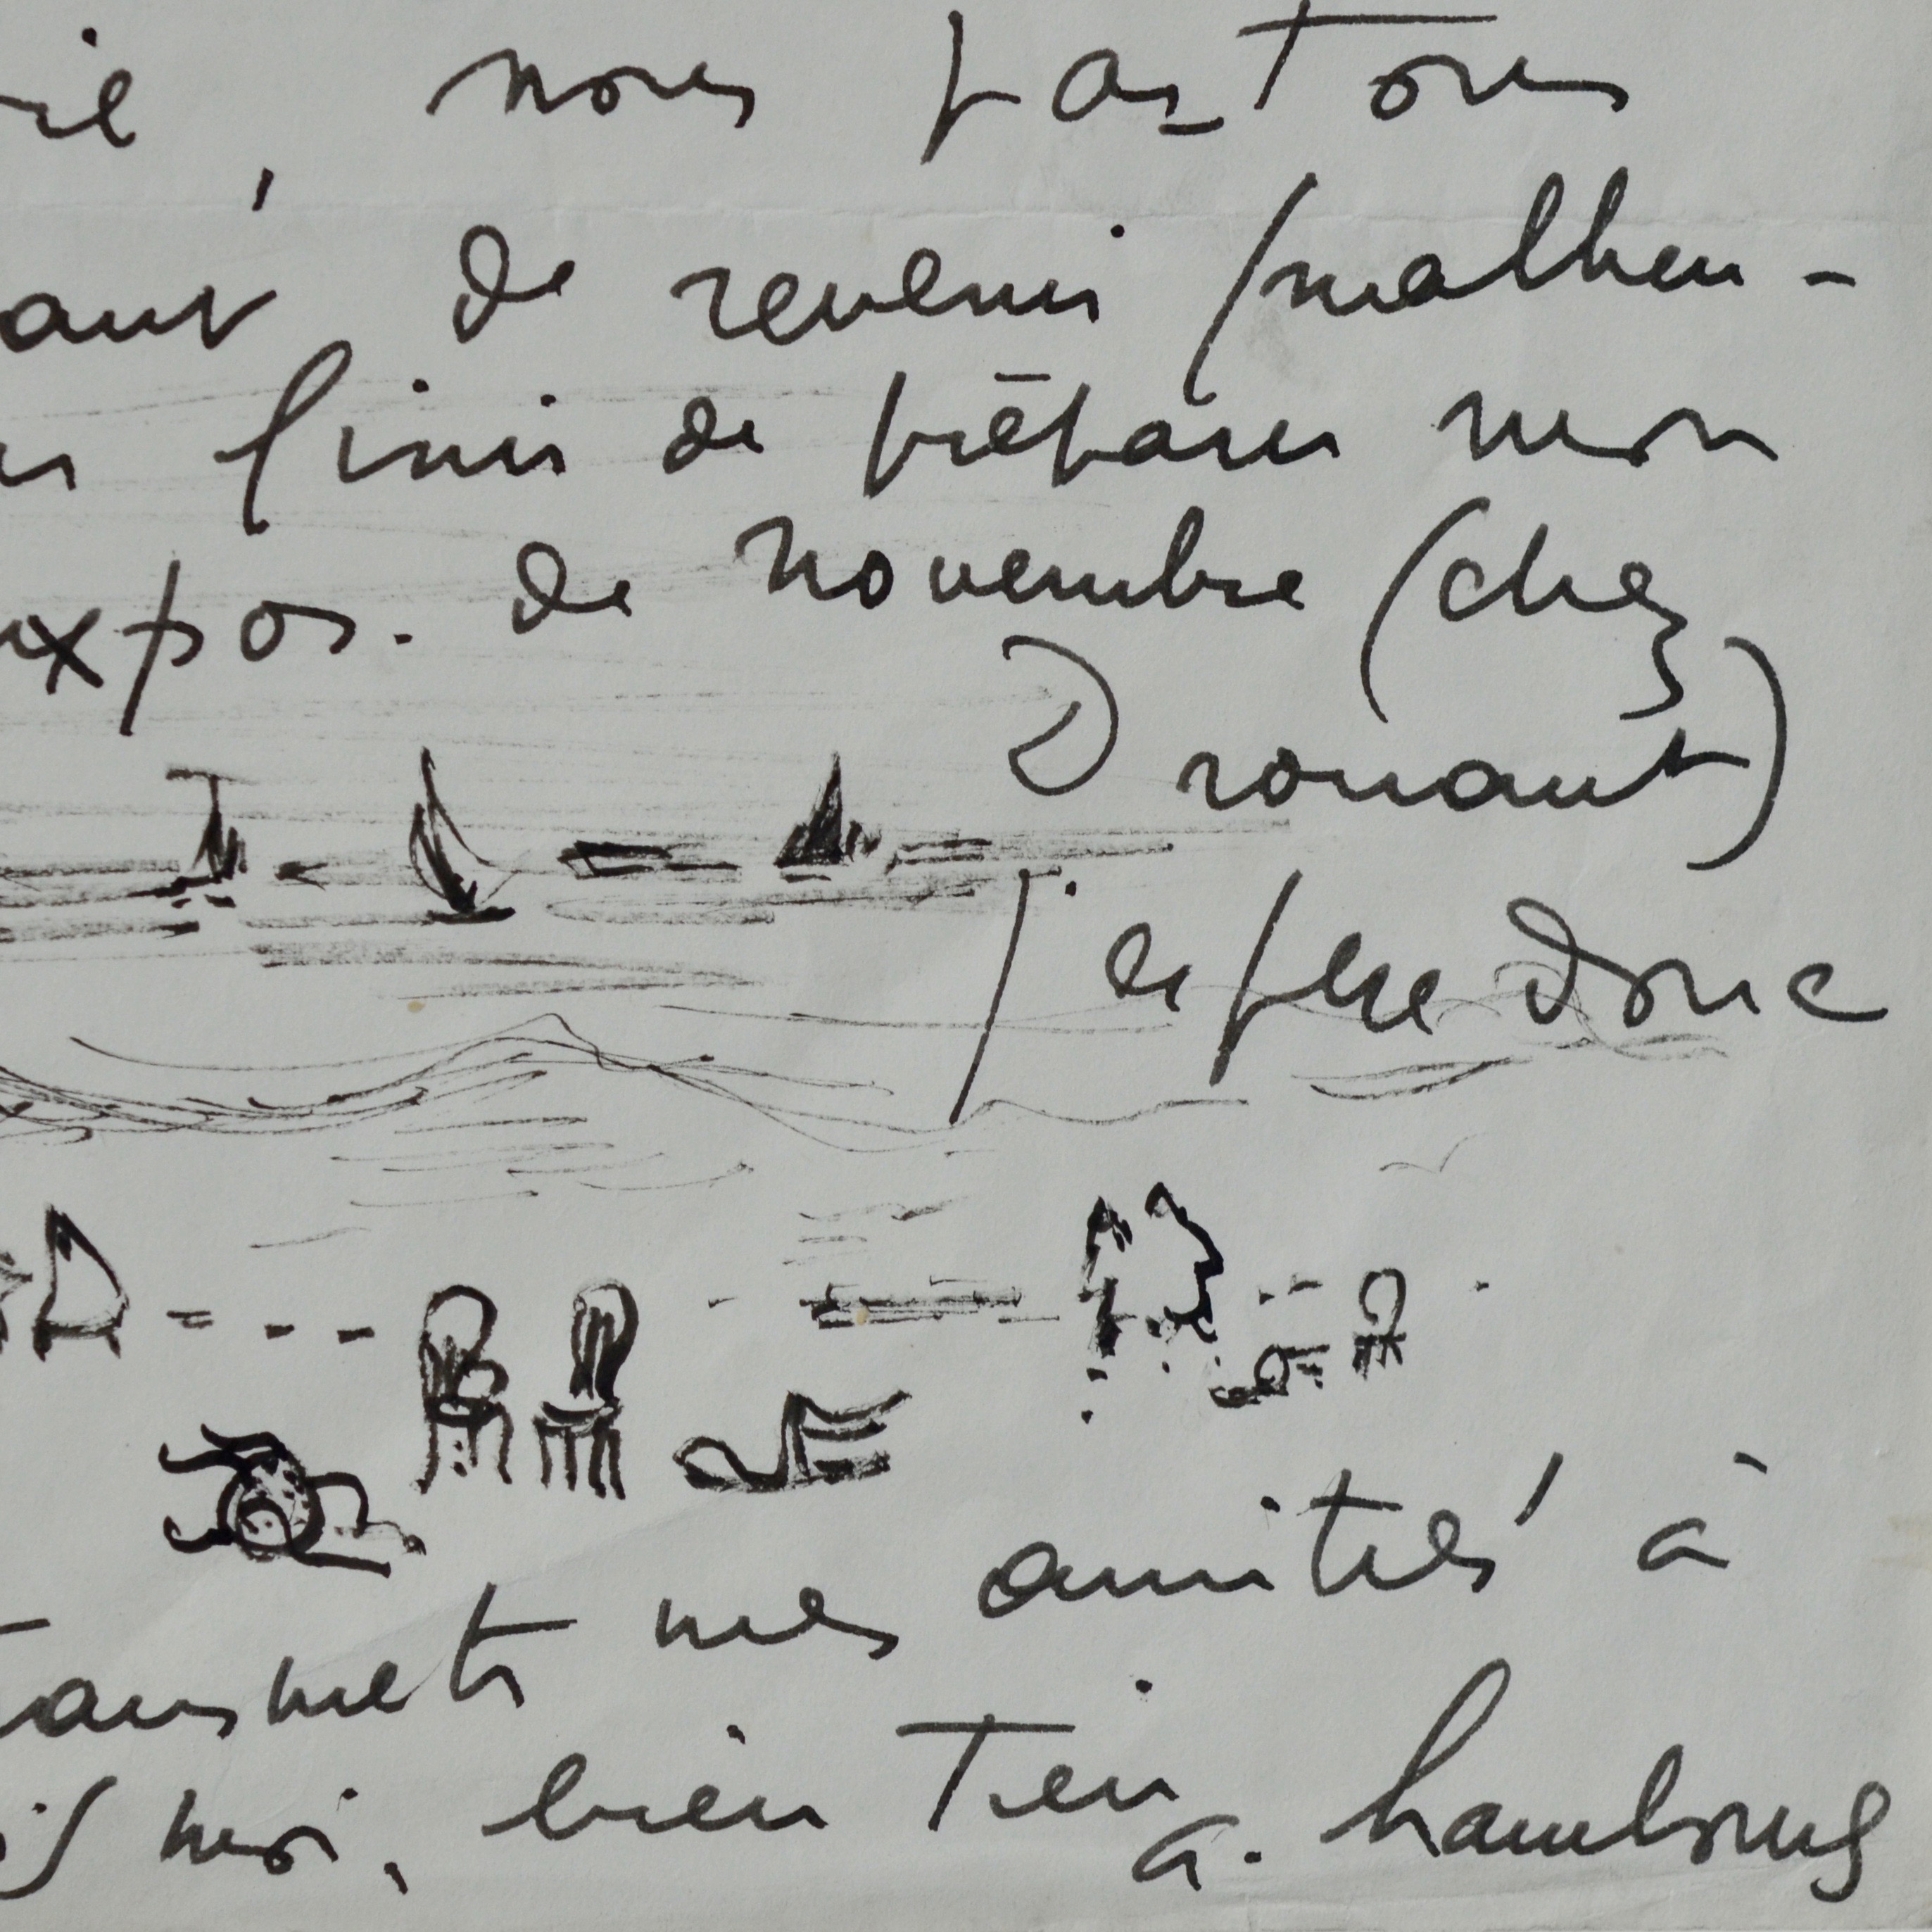 nous partons
de revenir (malheu-
finir de préparer mon
expos. de novembre (chez
Drouant)
J'espère donc
transmets mes amitiés à
moi, bien tien
a. hambourg